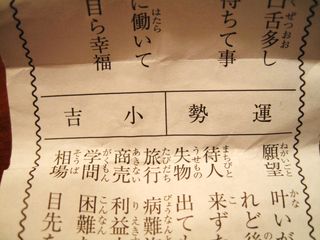 口舌多し
待ちて事
に働いて
自ら幸福
運勢
小吉
願望 叶いが
れど後
待人 来ず
失物 出て
旅行 病難
商売 利益
学問 困難
相場 目先を